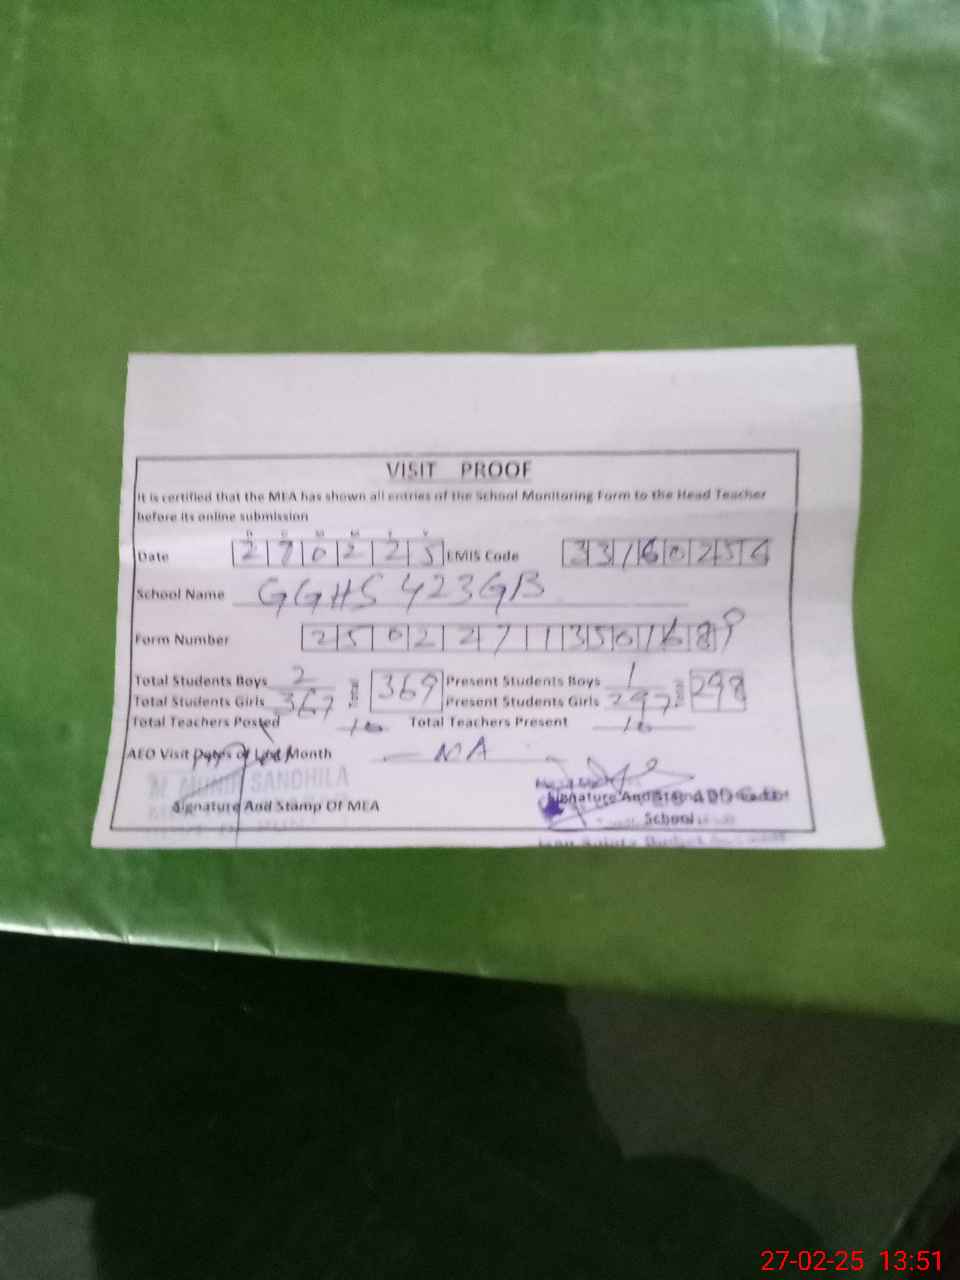 VISIT PROOF
It is certified that the MEA has shown all entries of the School Monitoring Form to the Head Teacher
before its online submission
D D M M Y Y
Date 270225 EMIS Code 33160256
School Name GGHS 423GB
Form Number 25022711350168 9
Total Students Boys 2 Total 369 Present Students Boys 1 Total 298
Total Students Girls 367 Present Students Girls 297
Total Teachers Posted 16 Total Teachers Present 16
AEO Visit Dates of Last Month NA
SANDHILA
Signature And Stamp Of MEA
Signature And Stamp
School
27-02-25 13:51